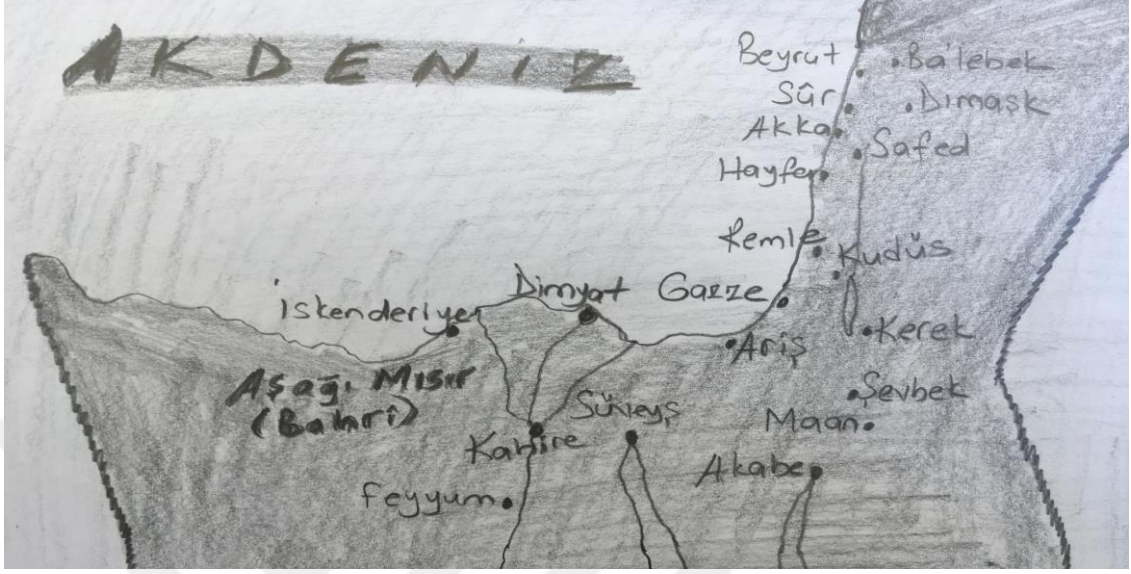 AKDENİZ
Beyrut
Ba'lebek
Sûr
Dımaşk
Akka
Safed
Hayfa
Remle
Kudüs
İskenderiye
Dimyat
Gazze
Kerek
Ariş
Aşağı Mısır
(Bahrî)
Süveyş
Şevbek
Maan
Kahire
Akabe
Feyyum